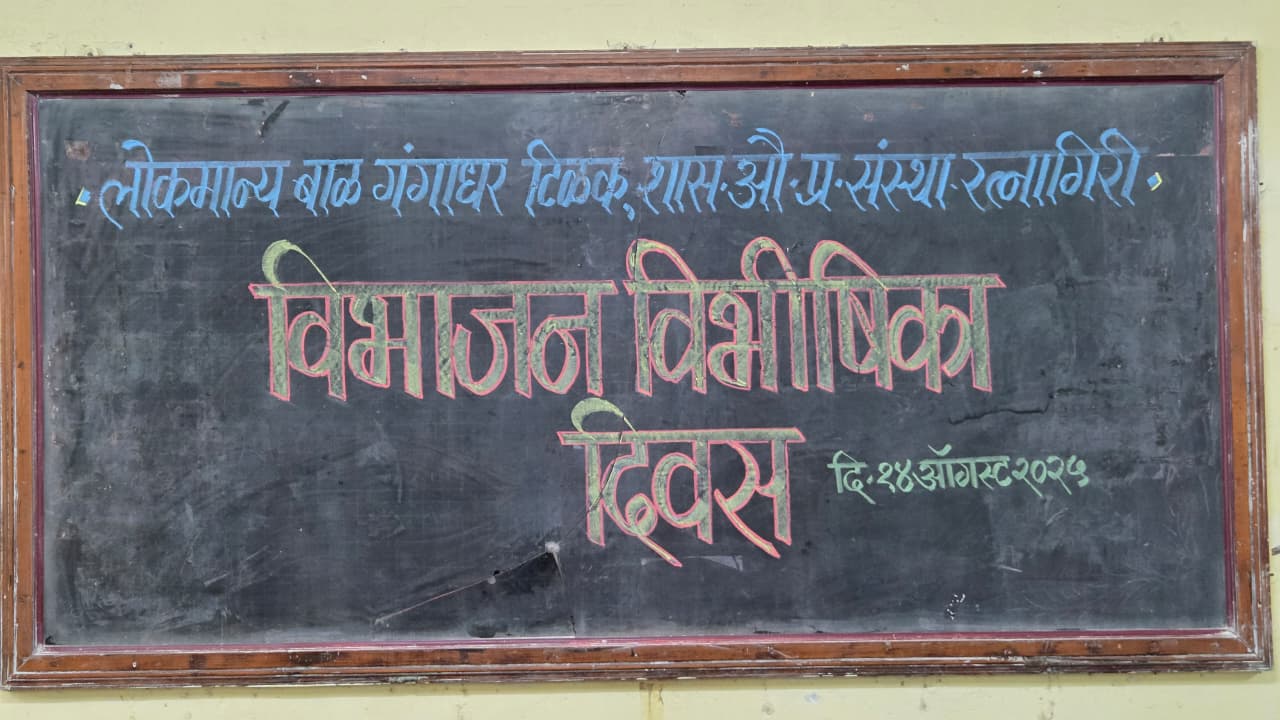 लोकमान्य बाळ गंगाधर टिळक, शास.औ.प्र.संस्था.रत्नागिरी
विभाजन विभीषिका
दिवस
दि.१४ऑगस्ट२०२५